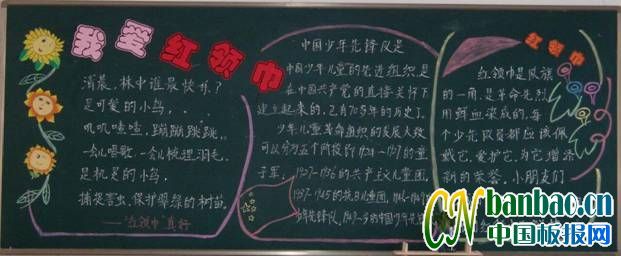 我爱红领巾
清晨,林中谁最快乐?
是可爱的小鸟,
叽叽喳喳,蹦蹦跳跳,
一会儿唱歌,一会儿梳理羽毛,
是机灵的小鸟
捕捉害虫,保护翠绿的树苗,
——"红领巾"真好
中国少年先锋队是
中国少年儿童的先进组织,是
在中国共产党的直接关怀下
建立起来的,已有70多年的历史了。
少年儿童革命组织的发展大致
可以分为五个阶段:1924-1927的童
子军,1927-1936的共产主义儿童团,
1937-1945的抗日儿童团,1946-1949
少年先锋队,1949-今的中国少年先
红领巾
红领巾是队旗
的一角,是革命先烈
用鲜血染成的,每
个少先队员都应该佩
戴它,爱护它,为它增添
新的荣誉。小朋友们
CN banbao.cn
中国板报网